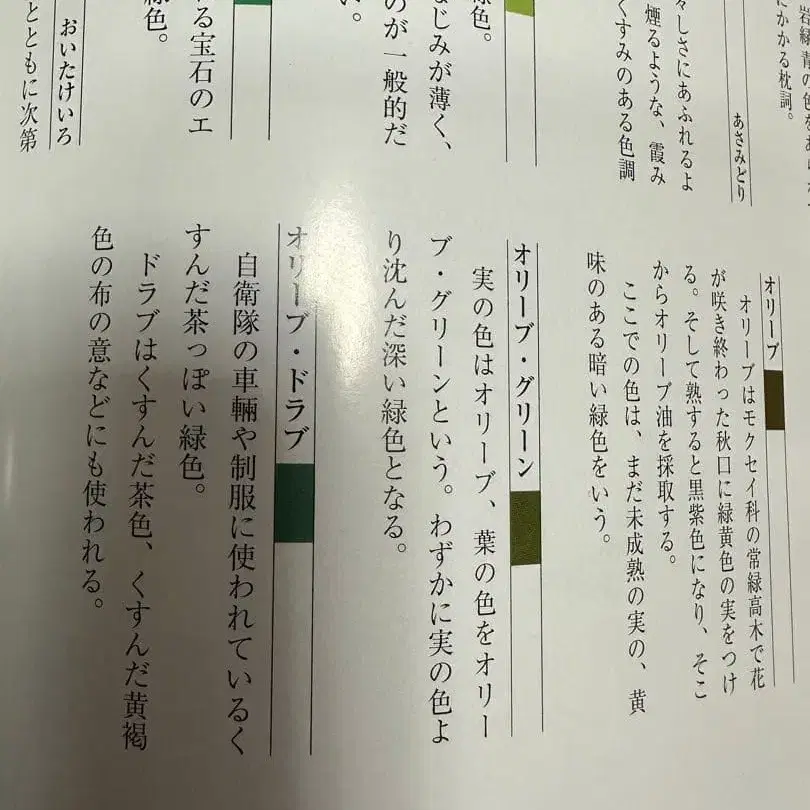 岩緑青の色をあ
にかかる枕詞。
あさみどり
々しさにあふれるよ
煙るような、霞み
くすみのある色調
緑色。
なじみが薄く、
のが一般的だ
い。
る宝石のエ
色。
おいたけいろ
とともに次第
オリーブ
オリーブはモクセイ科の常緑高木で花
が咲き終わった秋口に緑黄色の実をつけ
る。そして熟すると黒紫色になり、そこ
からオリーブ油を採取する。
ここでの色は、まだ未成熟の実の、黄
味のある暗い緑色をいう。
オリーブ・グリーン
実の色はオリーブ、葉の色をオリー
ブ・グリーンという。わずかに実の色よ
り沈んだ深い緑色となる。
オリーブ・ドラブ
自衛隊の車輛や制服に使われているく
すんだ茶っぽい緑色。
ドラブはくすんだ茶色、くすんだ黄褐
色の布の意などにも使われる。